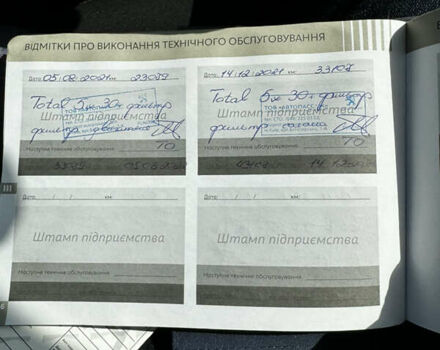 ВІДМІТКИ ПРО ВИКОНАННЯ ТЕХНІЧНОГО ОБСЛУГОВУВАННЯ
Дата: 05/02/2021 км:
Total 5w30+фильтр
Штамп підприємства
фильтр
ТО
Наступне технічне обслуговування:
Дата: 14/12/2021 км: 33107
Total 5w30+фильтр
ТОВ «АВТОПАСС
Штамп підприємства
фильтр салона
ТО
Наступне технічне обслуговування:
Дата: / / км:
Штамп підприємства
Наступне технічне обслуговування:
Дата: / / км:
Штамп підприємства
Наступне технічне обслуговування:
III
6